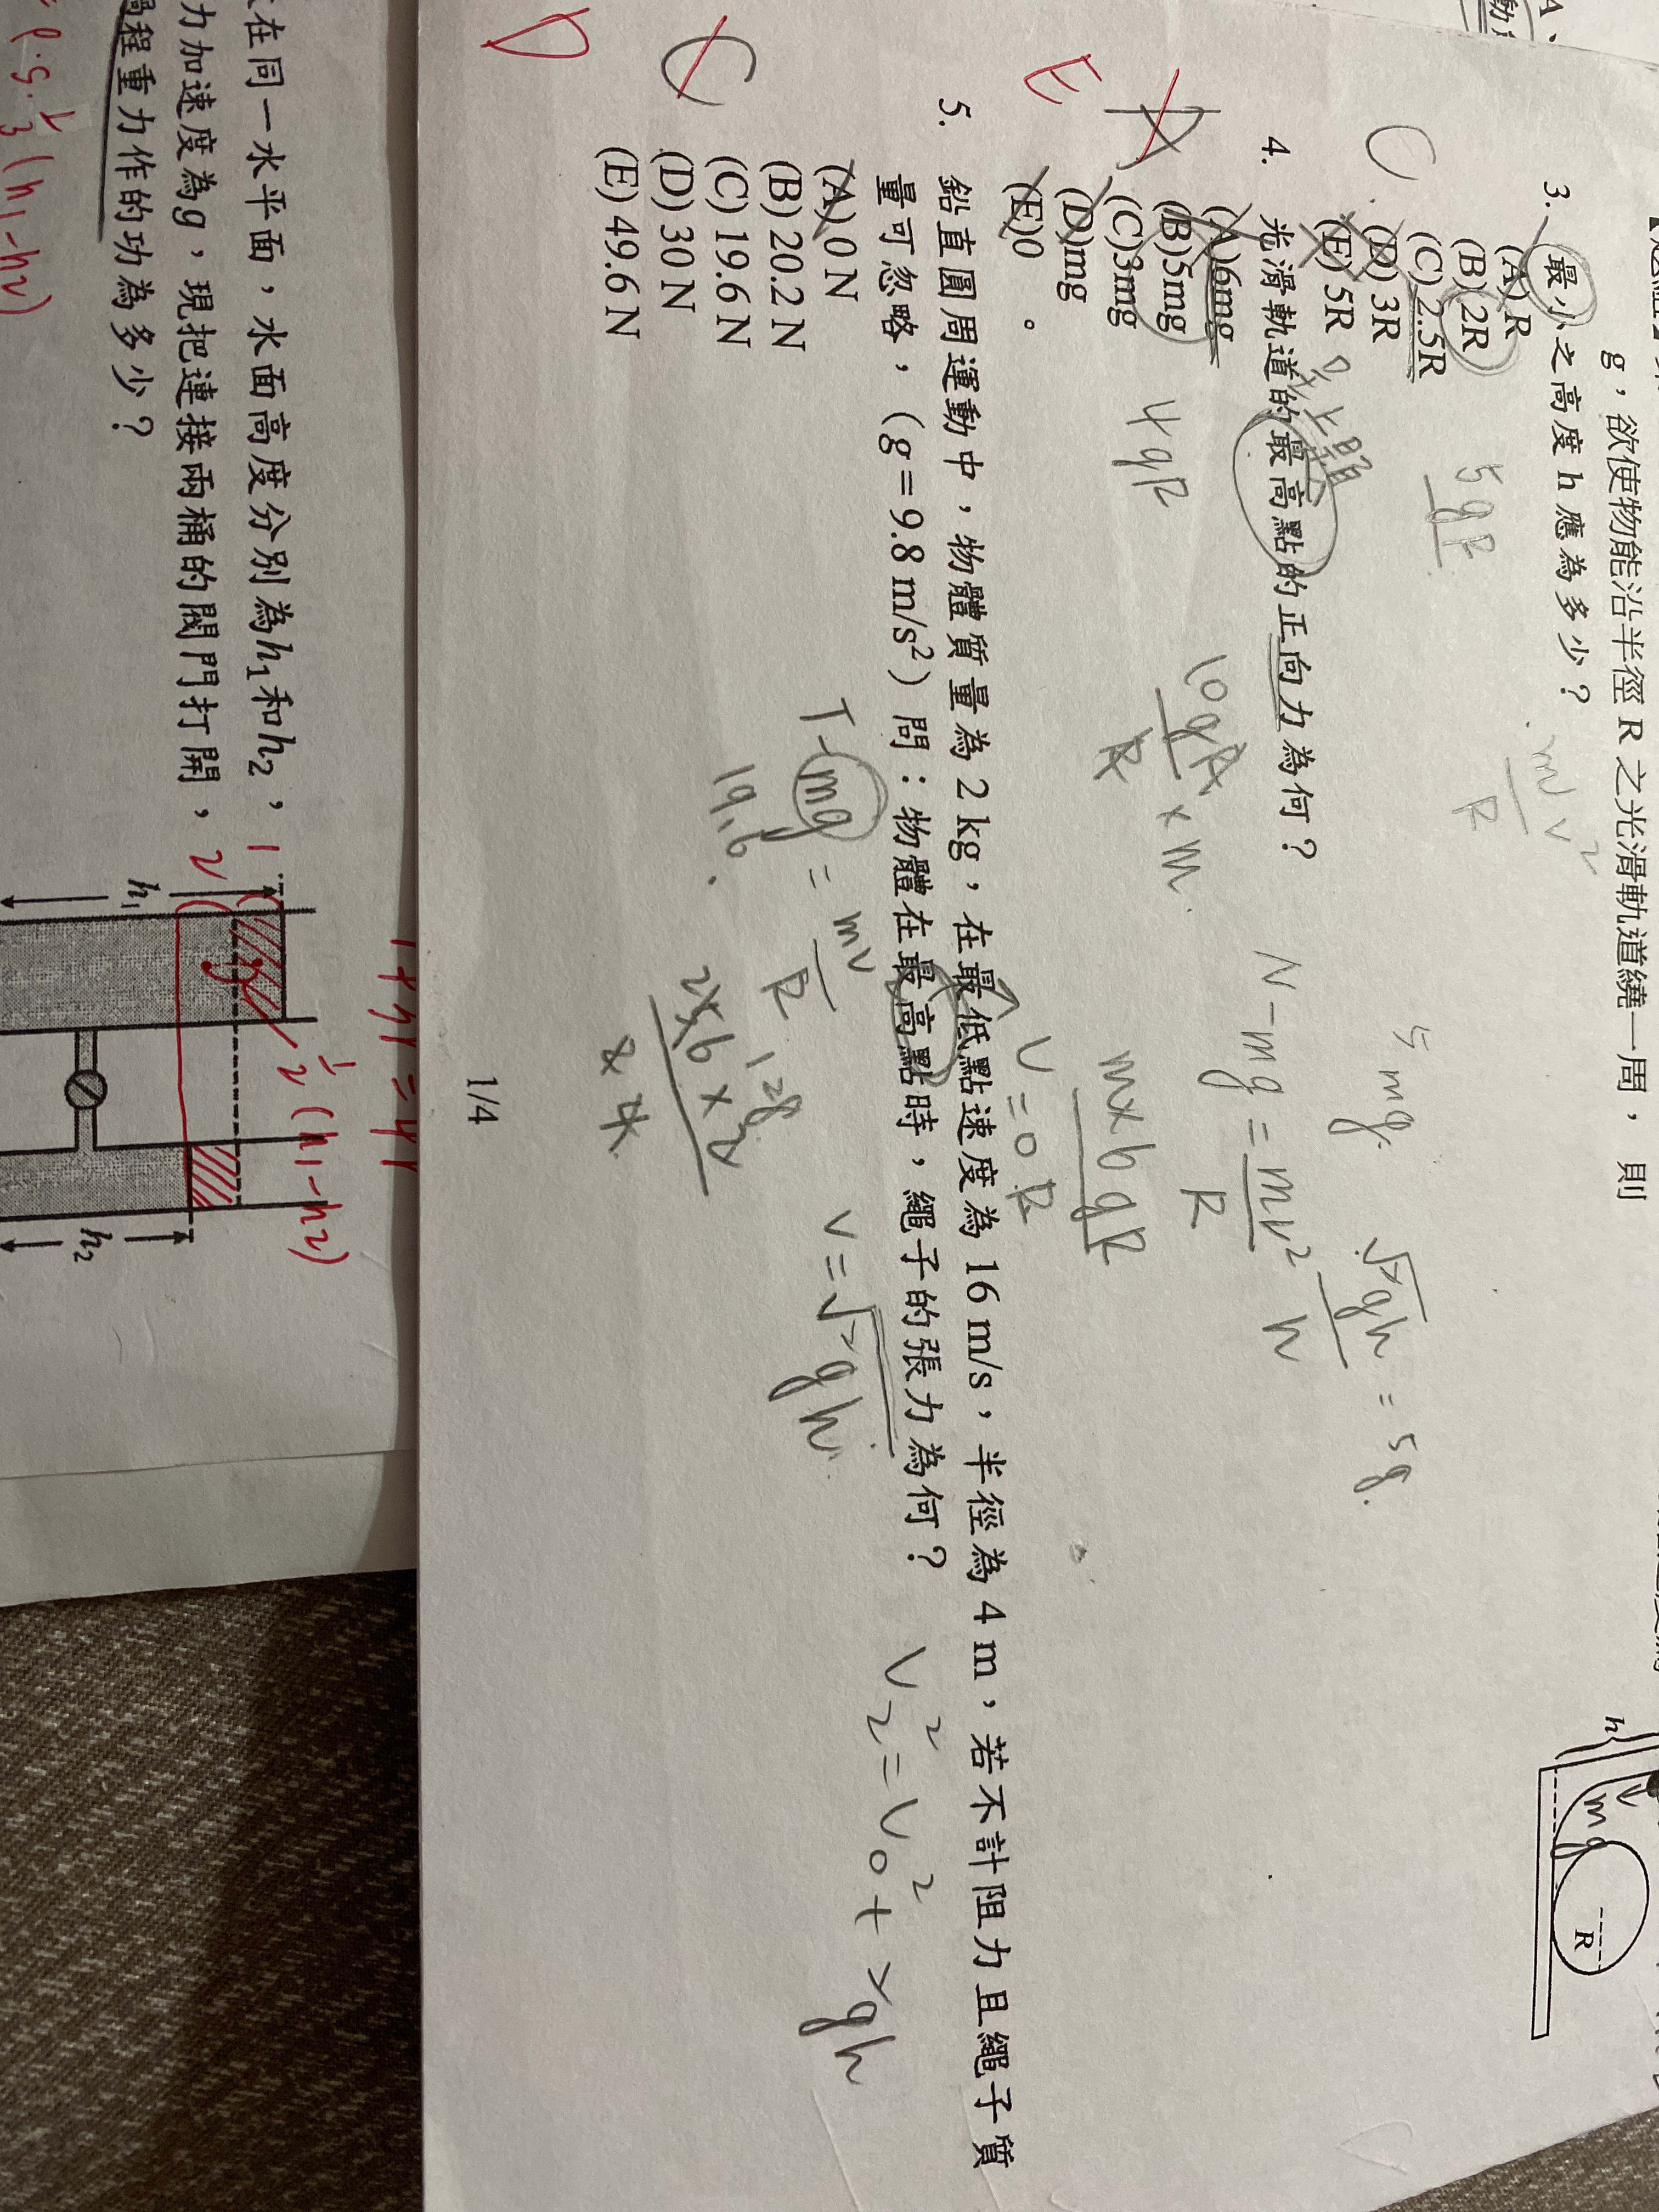 g，欲使物能沿半徑 R 之光滑軌道繞一周，則
3. 最小之高度 h 應為多少？
(A) R
(B) 2R
(C) 2.5R
(D) 3R
(E) 5R
C
5gR
mv²
R
h
mg
R
4. 光滑軌道的最高點的正向力為何？
承上題
(A)6mg
(B)5mg
(C)3mg
(D)mg
(E)0 。
A
E
4gR
10gR
R
× m
N - mg = mv²
R
5mg
√2gh = 5g
h
m×6gR
R
v = 0
5. 鉛直圓周運動中，物體質量為 2 kg，在最低點速度為 16 m/s，半徑為 4 m，若不計阻力且繩子質
量可忽略，（g＝9.8 m/s²）問：物體在最高點時，繩子的張力為何？
(A) 0 N
(B) 20.2 N
(C) 19.6 N
(D) 30 N
(E) 49.6 N
C
D
T - mg = mv
R
19.6
128
256 × 2
4
v = √2gh
V₂² = V₀² + 2gh
1/4
在同一水平面，水面高度分別為h₁和h₂，
力加速度為g，現把連接兩桶的閥門打開，
過程重力作的功為多少？
h₁
h₂
½(h₁-h₂)